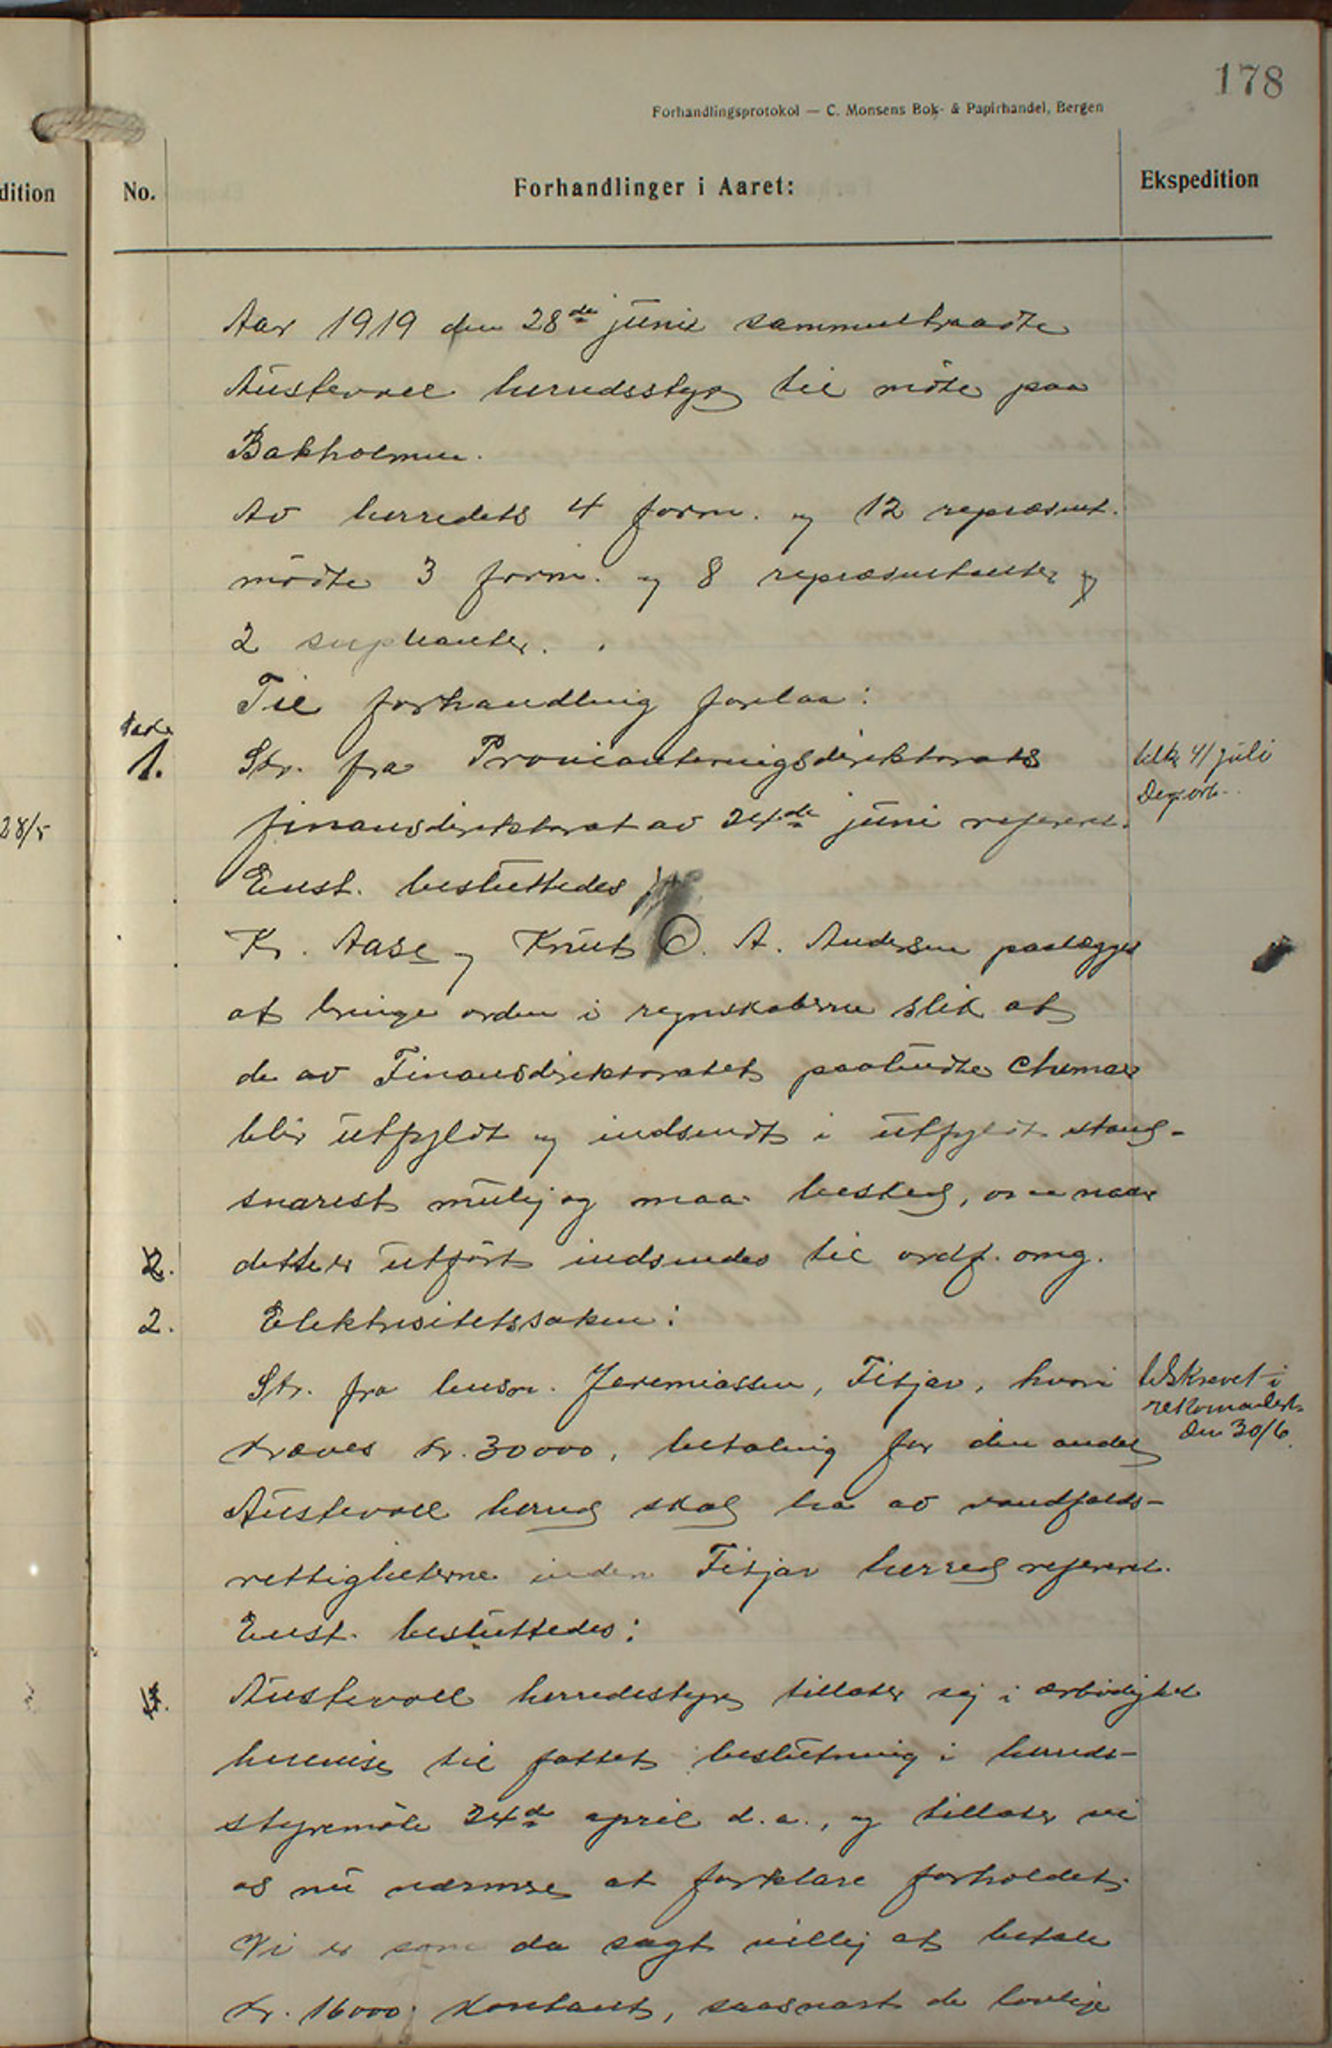 178
Forhandlingsprotokol — C. Monsens Bok- & Papirhandel, Bergen
dition
No.
Forhandlinger i Aaret:
Ekspedition
Aar 1919 den 28de juni sammentraadte
Austevoll herredsstyre til møte paa
Bakholmen.
Av herredets 4 form. og 12 repræsent.
mødte 3 form. og 8 repræsentanter og
2 supleanter.
Til forhandling forelaa:
Sak
1.
Skr. fra Provianteringsdirektorats
4/ juli
finansdirektorat av 24de juni referert.
28/5
Enst. besluttedes
Kr. Aase og Knut O. A. Andersen paalægges
at bringe orden i regnskaberne slik at
de av Finansdirektoratet
blir utfyldt og indsendt i utfyldt stand
snarest mulig og maa besked, om naar
2.
dette er utført indsendes til ordf. omg.
2.
Elektrisitetssaken:
Skr. fra lensm. Jeremiassen, Fitjar, hvori
Utskrevet i
rekomandert
den 30/6.
kræves kr. 30000, betaling for den andel
Austevoll herred skal ha av vandfalds-
rettigheterne inden Fitjar herred referert.
Enst. besluttedes:
Austevoll herredsstyre tillater sig i ærbødighet
henvise til fattet beslutning i herreds-
styremøte 24de april d.a., og tillater vi
os nu nærmere at forklare forholdet.
Vi er som da sagt villig at betale
kr. 16000 kontant, saasnart de lovlige